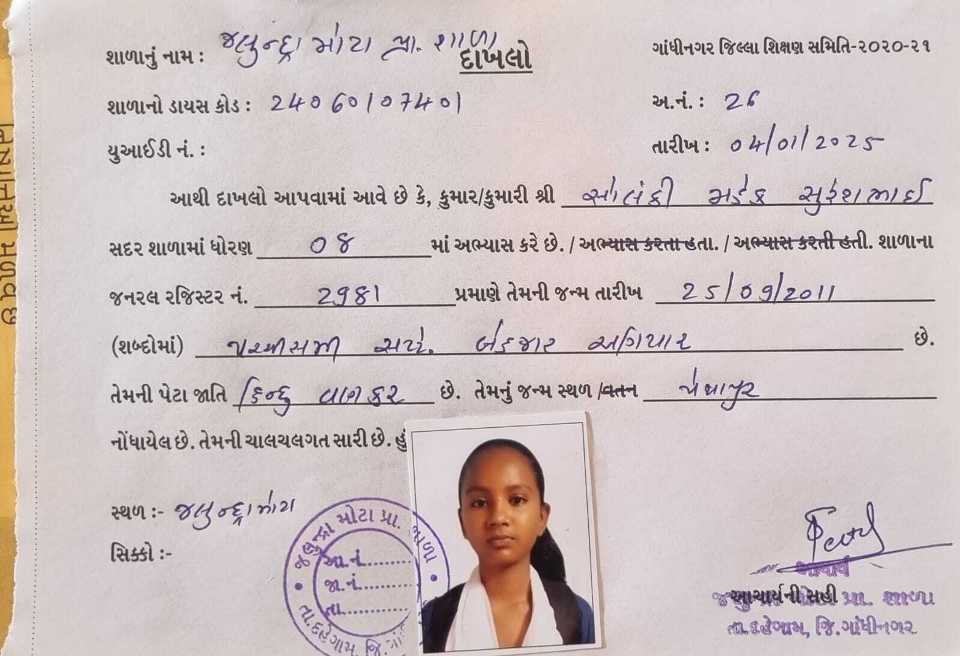 શાળાનું નામ : જલુન્દ્રા મોટા પ્રા. શાળા
દાખલો
ગાંધીનગર જિલ્લા શિક્ષણ સમિતિ-૨૦૨૦-૨૧
શાળાનો ડાયસ કોડ : 24060107401
અ.નં. : 26
યુઆઈડી નં. :
તારીખ : 04/01/2025
આથી દાખલો આપવામાં આવે છે કે, કુમાર/કુમારી શ્રી સોલંકી મહેક સુરેશભાઈ
સદર શાળામાં ધોરણ 08 માં અભ્યાસ કરે છે. / અભ્યાસ કરતા હતા. / અભ્યાસ કરતી હતી. શાળાના
જનરલ રજિસ્ટર નં. 2981 પ્રમાણે તેમની જન્મ તારીખ 25/09/2011
(શબ્દોમાં) પચ્ચીસમી સપ્ટે. બેહજાર અગિયાર છે.
તેમની પેટા જાતિ હિન્દુ વાણકર છે. તેમનું જન્મ સ્થળ /વતન
નોંધાયેલ છે. તેમની ચાલચલગત સારી છે. હું
સ્થળ :- જલુન્દ્રા મોટા
સિક્કો :-
જલુન્દ્રા મોટા પ્રા. શાળા
આ.નં.
જા.નં.
તા.
તા.દહેગામ, જિ.
આચાર્ય
આચાર્યની સહી
પ્રા. શાળા
તા.દહેગામ, જિ.ગાંધીનગર